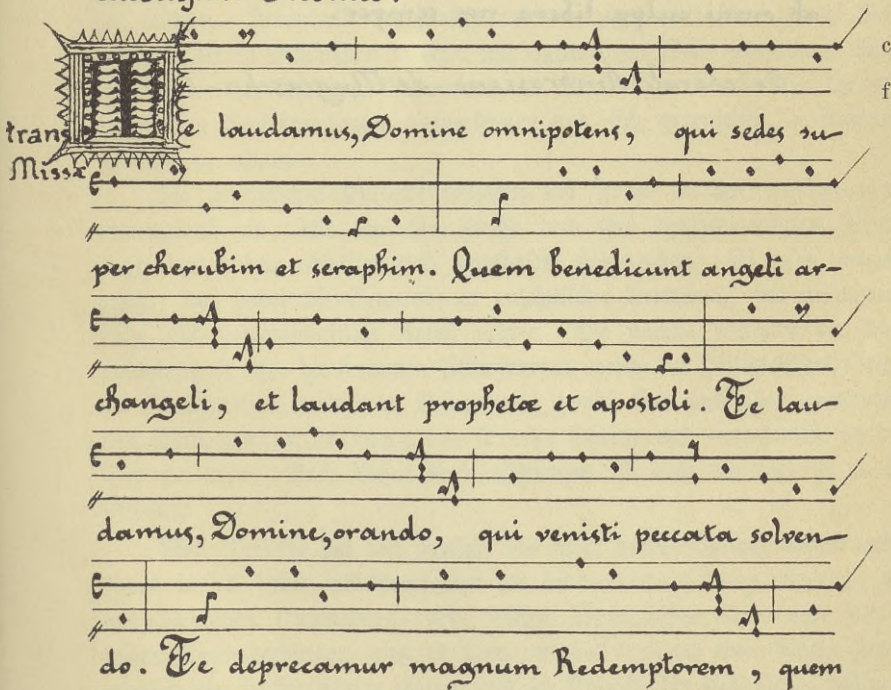 Te laudamus, Domine omnipotens, qui sedes su-
trans
Missæ
per cherubim et seraphim. Quem benedicunt angeli ar-
changeli, et laudant prophetæ et apostoli. Te lau-
damus, Domine, orando, qui venisti peccata solven-
do. Te deprecamur magnum Redemptorem, quem